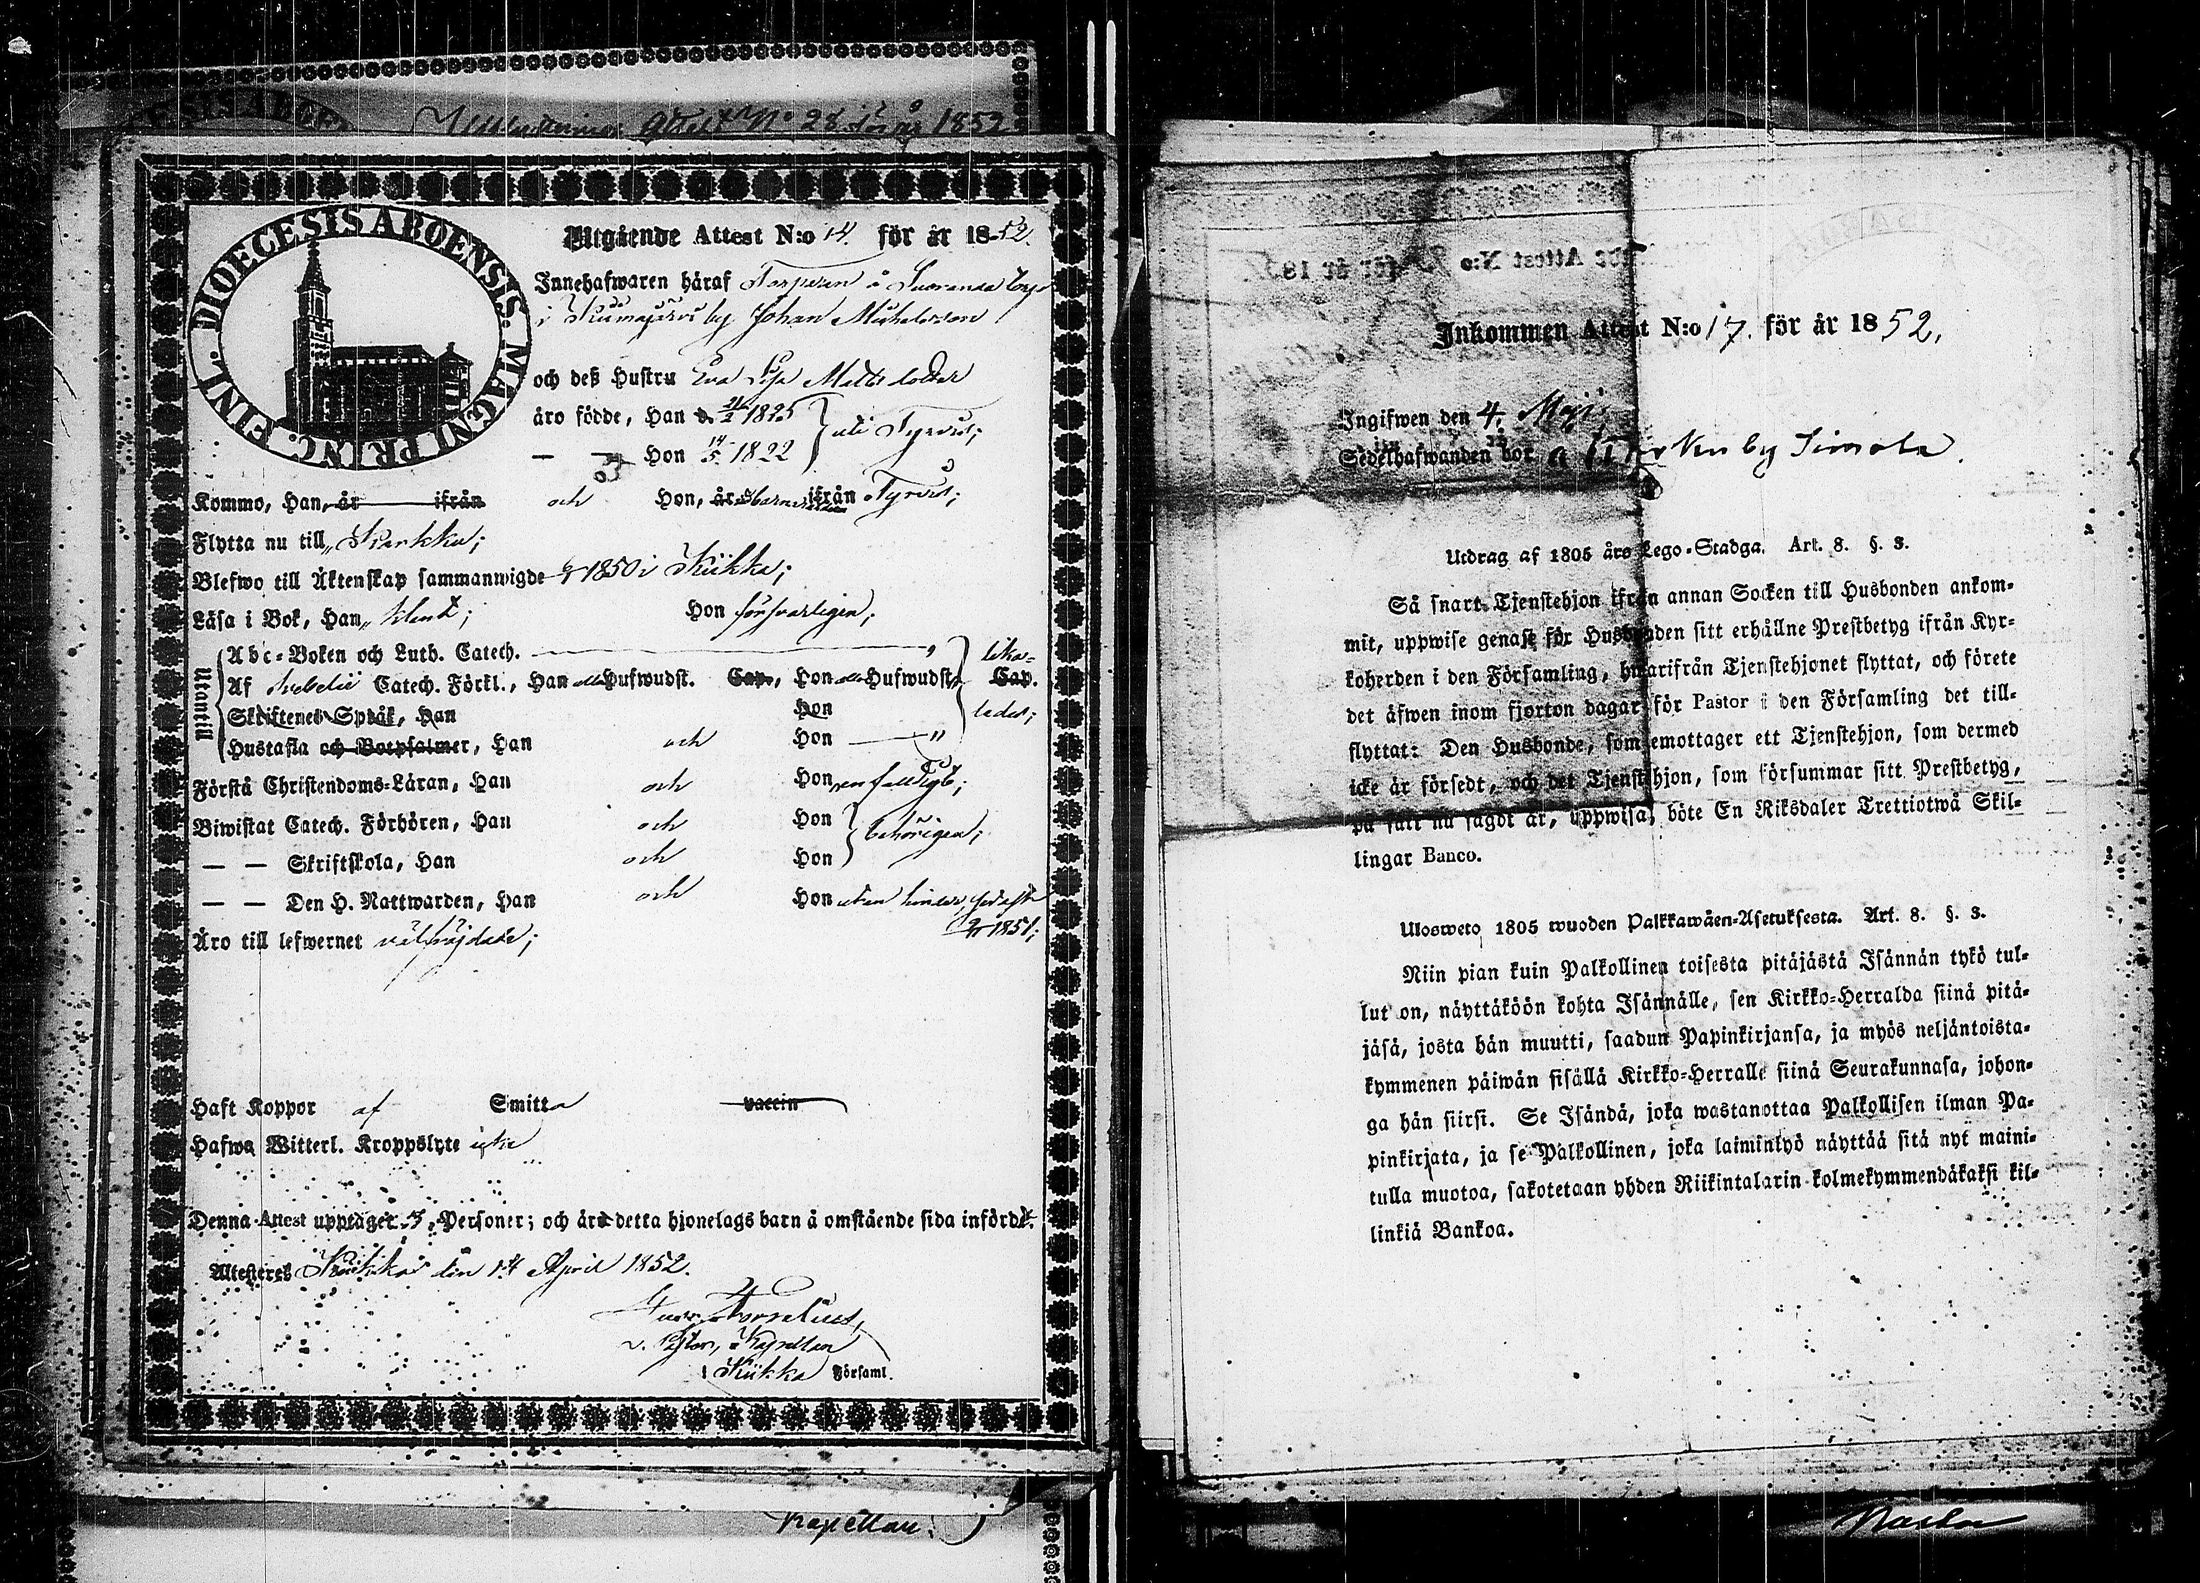 Attest No 28 för år 1852
DIOECESIS ABOENSIS. MAGNI PRINC. FINL.
Utgående Attest N:o 14. för år 1852.
Innehafwaren häraf Torparen å Suoranda torp
i Kiimajärvi by Johan Michelsson
och deß Hustru Eva Lisa Matts dotter
äro födde, Han d. 21/2 1825 uti Tyrvis;
— — Hon 14/5 1822
Kommo, Han, är ifrån och Hon, är ifrån Tyrvis;
Flytta nu till Karkku;
Blefwo till Äktenskap sammanwigde 1850 i Kiikka;
Läsa i Bok, Han klent; Hon försvarligen;
Utantill
Abc-Boken och Luth. Catech. — " lika-
Af Svebelii Catech. Förkl., Han Hufwudst. Cap., Hon Hufwudst. Cap.
Skriftenes Språk, Han Hon ledes;
Hustafla och Botpsalmer, Han och Hon — "
Förstå Christendoms-Läran, Han och Hon enfalldigt;
Biwistat Catech. Förhören, Han och Hon behörigen;
— — Skriftskola, Han och Hon
— — Den H. Nattwarden, Han och Hon utan hinder, sednast
1851;
Äro till lefwernet välfräjdade;
Haft Koppor af Smitta vaccin
Hafwa Witterl. Kroppslyte icke
Denna Attest upptager 3 Personer; och äro detta hjonelags barn å omstående sida införde.
Attesteres Kiikka den 14 April 1852.
v. Pastor, Kapellan
i Kiikka Församl.
Kapellan.
Inkommen Attest N:o 17. för år 1852.
Ingifwen den 4. Maji
Sedelhafwanden bor å Kirkon by Simola.
Utdrag af 1805 års Lego-Stadga. Art. 8. §. 3.
Så snart Tjenstehjon ifrån annan Socken till Husbonden ankom-
mit, uppwise genast för Husbonden sitt erhållne Prestbetyg ifrån Kyr-
koherden i den Församling, hwarifrån Tjenstehjonet flyttat, och förete
det äfwen inom fjorton dagar för Pastor i den Församling det till-
flyttat: Den Husbonde, som emottager ett Tjenstehjon, som dermed
icke är försedt, och det Tjenstehjon, som försummar sitt Prestbetyg,
på sätt nu sagdt är, uppwisa, böte En Riksdaler Trettiotwå Skil-
lingar Banco.
Ulosweto 1805 wuoden Palkkawäen-Asetuksesta. Art. 8. §. 3.
Niin pian kuin Palkollinen toisesta pitäjästä Isännän tykö tul-
lut on, näyttäköön kohta Isännälle, sen Kirkko-Herralda siinä pitä-
jäsä, josta hän muutti, saadun Papinkirjansa, ja myös neljäntoista-
kymmenen päiwän sisällä Kirkko-Herralle siinä Seurakunnasa, johon-
ga hän siirsi. Se Isändä, joka wastanottaa Palkollisen ilman Pa-
pinkirjata, ja se Palkollinen, joka laiminlyö näyttää sitä nyt maini-
tulla muotoa, sakotetaan yhden Riikintalarin kolmekymmendäkaksi kil-
linkiä Bankoa.